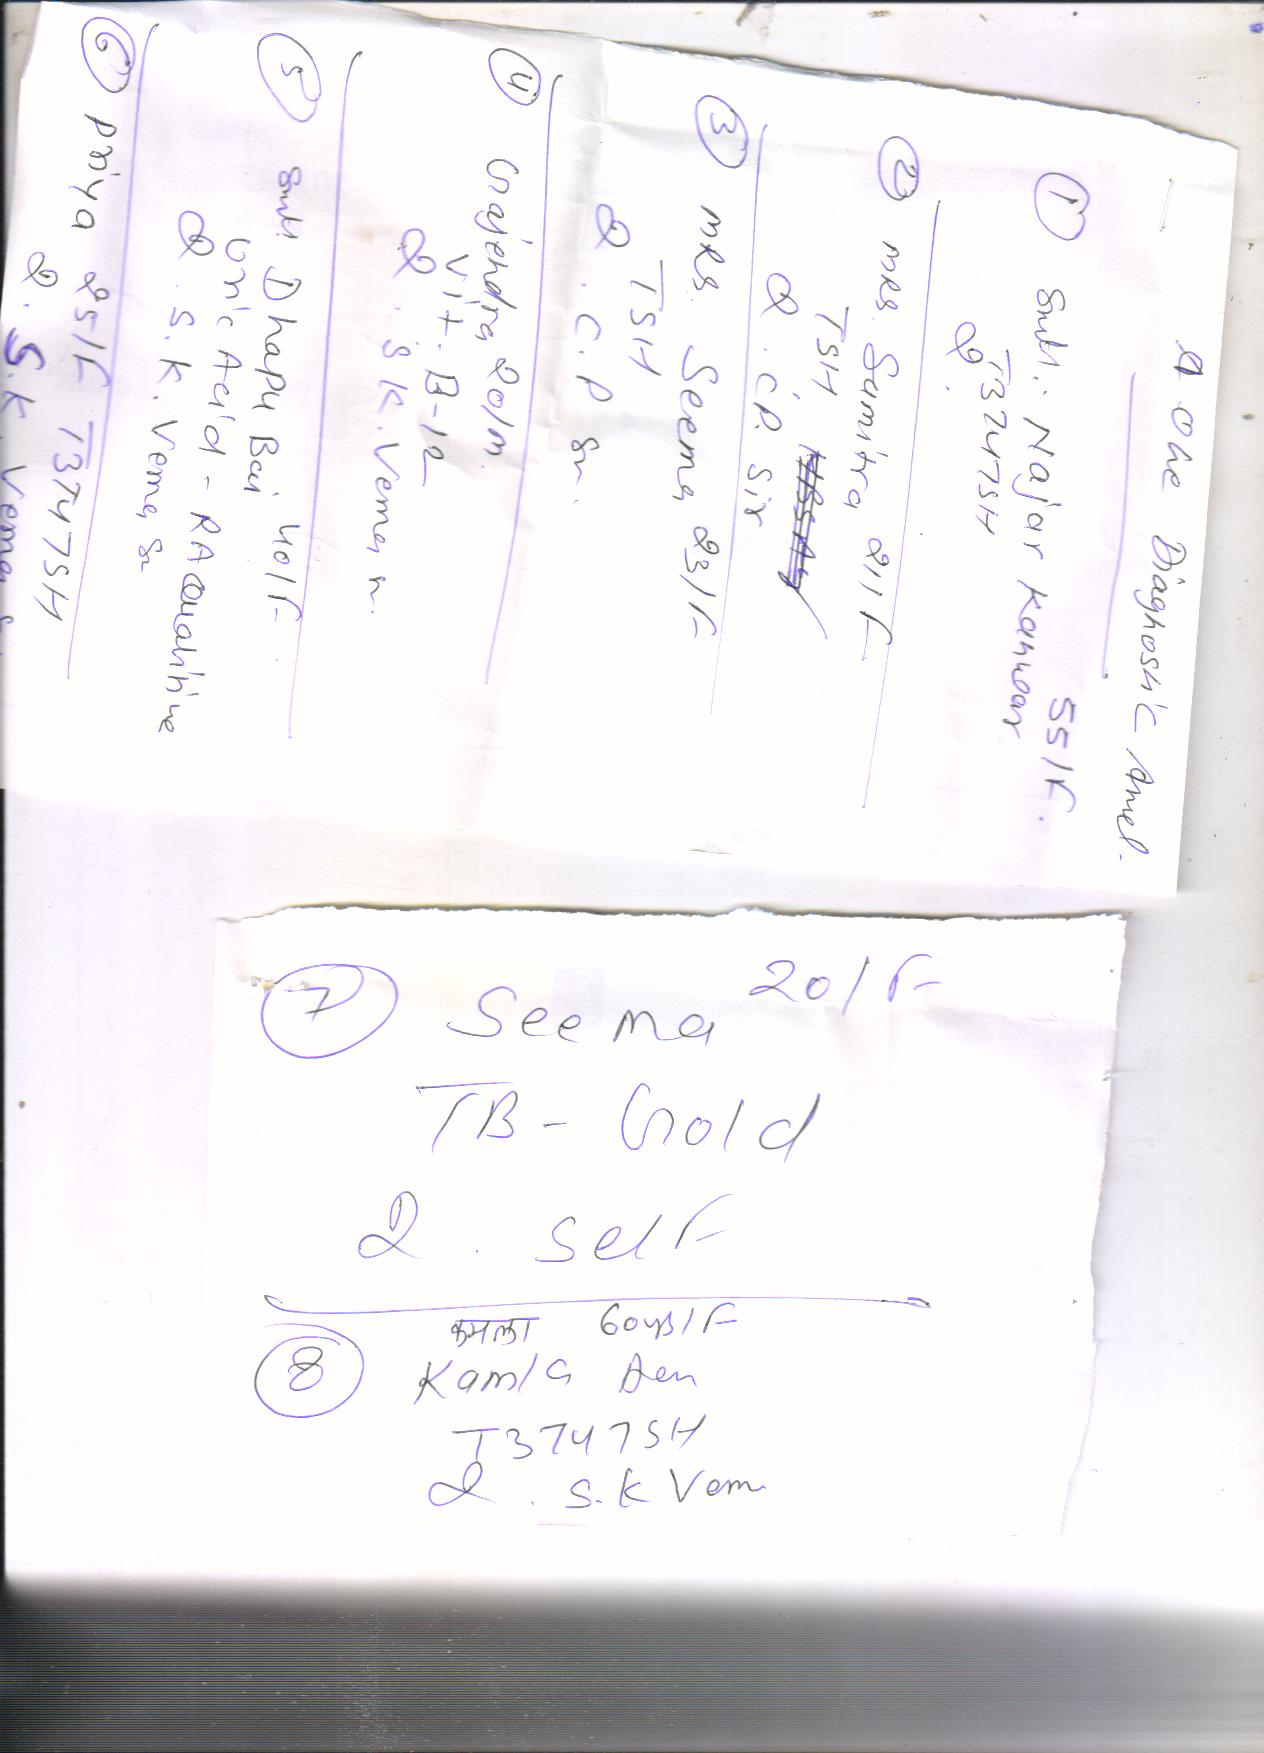 A one Diagnostic Amet.
① Smt. Najar Kanwar
55/F.
T3T4TSH
Q.
② MRS. Sumitra 21/F
TSH
Q. C.P. Sir
③ MRS. Seema 23/F
TSH
Q. C.P Sr.
④ Gajendra 20/m.
Vit. B-12
Q. S K. Verma
⑤ Smt. Dhapu Bai 40/F.
Uric Acid - RA Quantitive
Q. S.K. Verma Sr
⑥ Priya 25/F T3T4TSH
Q. S.K. Verma
⑦ Seema 20/F
TB- Gold
Q. Self
कमला 60yrs/F
⑧ Kamla
T3T4TSH
Q. S.K Verma